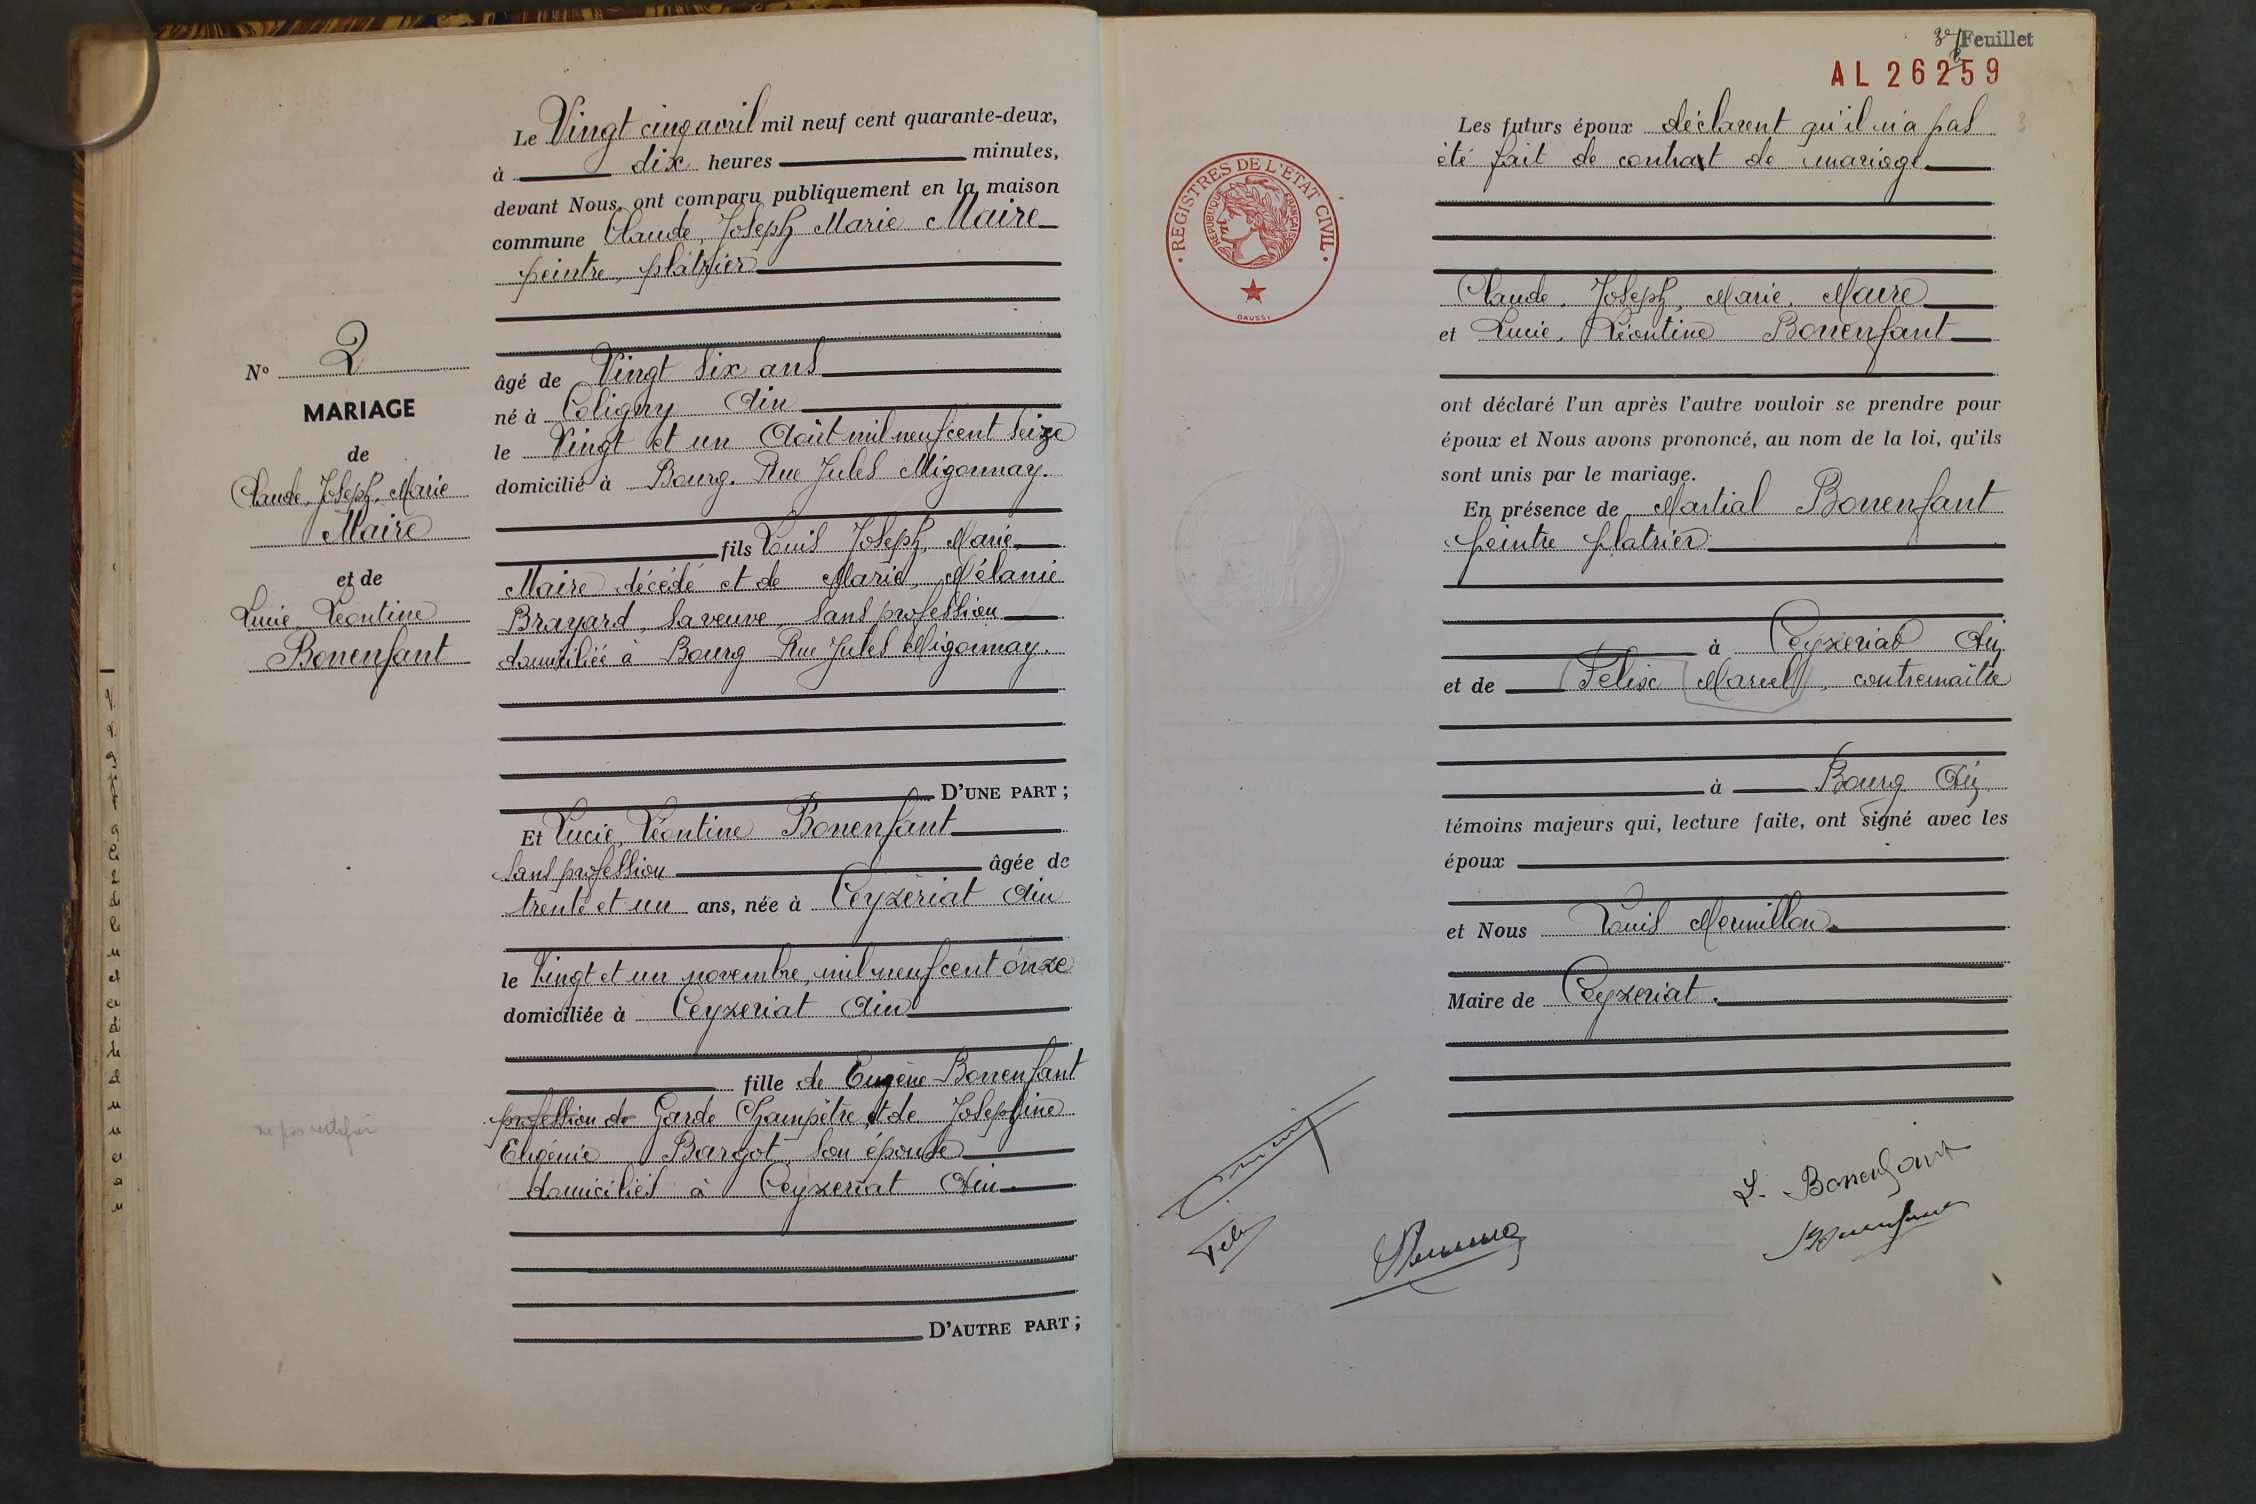 Le Vingt cinq avril mil neuf cent quarante-deux,
à dix heures minutes,
devant Nous, ont comparu publiquement en la maison
commune Claude, Joseph Marie Maire
peintre, plâtrier
N° 2
MARIAGE
de
Claude, Joseph, Marie
Maire
et de
Lucie, Léontine
Bonenfant
âgé de Vingt six ans
né à Coligny Ain
le Vingt et un Août mil neuf cent seize
domicilié à Bourg. Rue Jules Migonnay.
fils Louis Joseph, Marie
Maire décédé et de Marie, Mélanie
Brayard, sa veuve, sans profession
domiciliée à Bourg Rue Jules Migonnay.
D'UNE PART ;
Et Lucie, Léontine Bonenfant
sans profession âgée de
trente et un ans, née à Ceyzériat Ain
le Vingt et un novembre, mil neuf cent onze
domiciliée à Ceyzeriat Ain
fille de Eugène Bonenfant
profession de Garde Champêtre et de Joséphine
Eugénie Bargot son épouse
domiciliés à Ceyzeriat Ain
D'AUTRE PART ;
ne pas rectifier
Feuillet
AL 26259
REGISTRES DE L'ETAT CIVIL
REPUBLIQUE FRANÇAISE
DAUSSY
Les futurs époux déclarent qu'il n'a pas
été fait de contrat de mariage
Claude, Joseph, Marie, Maire
et Lucie, Léontine Bonenfant
ont déclaré l'un après l'autre vouloir se prendre pour
époux et Nous avons prononcé, au nom de la loi, qu'ils
sont unis par le mariage.
En présence de Martial Bonenfant
peintre platrier
à Ceyzeriat Ain
et de Felix Marcel, contremaître
à Bourg Ain
témoins majeurs qui, lecture faite, ont signé avec les
époux
et Nous Louis Mermillon
Maire de Ceyzeriat.
L. Bonenfant
Bonenfant